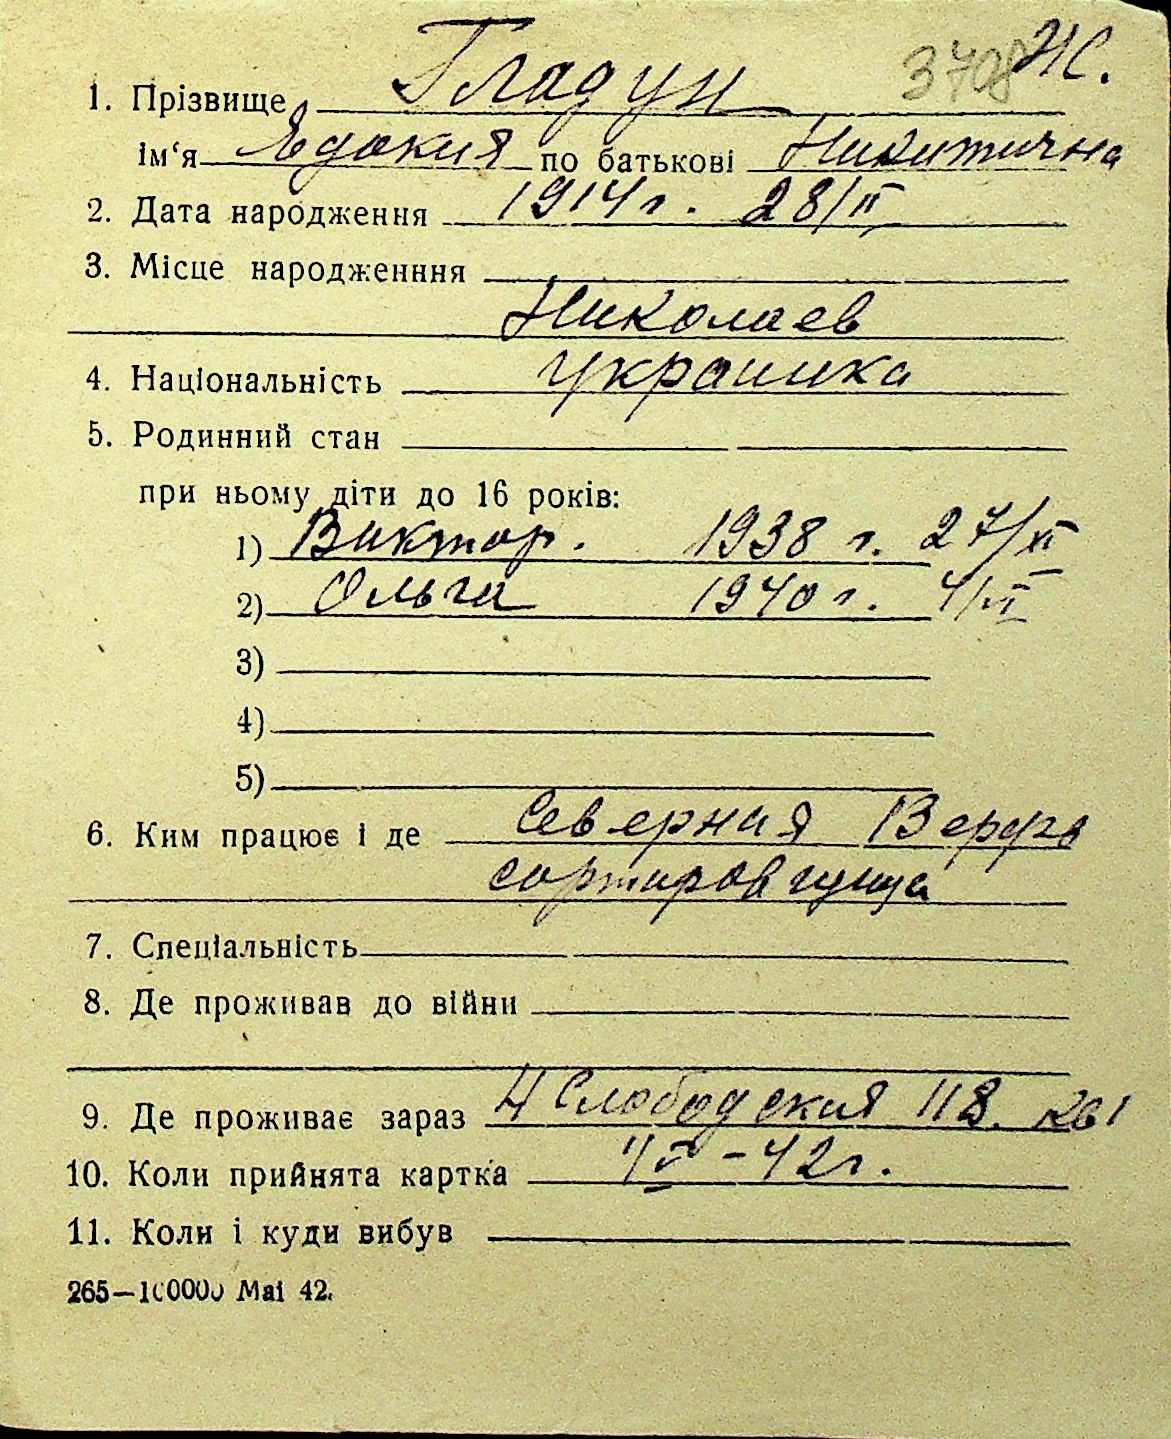 3708 Ж.
1. Прізвище Гладун
Ім'я Явдокия по батькові Никитична
2. Дата народження 1914 г. 28/II
3. Місце народженння
Николаев
4. Національність украинка
5. Родинний стан
при ньому діти до 16 років:
1) Виктор. 1938 г. 27/XI
2) Ольга 1940 г. 4/VI
3)
4)
5)
6. Ким працює і де Северная Верфь
сортировщица
7. Спеціальність
8. Де проживав до війни
9. Де проживає зараз 4 Слободская 118. кв 1
10. Коли прийнята картка -42 г.
11. Коли і куди вибув
265—100000 Mai 42.